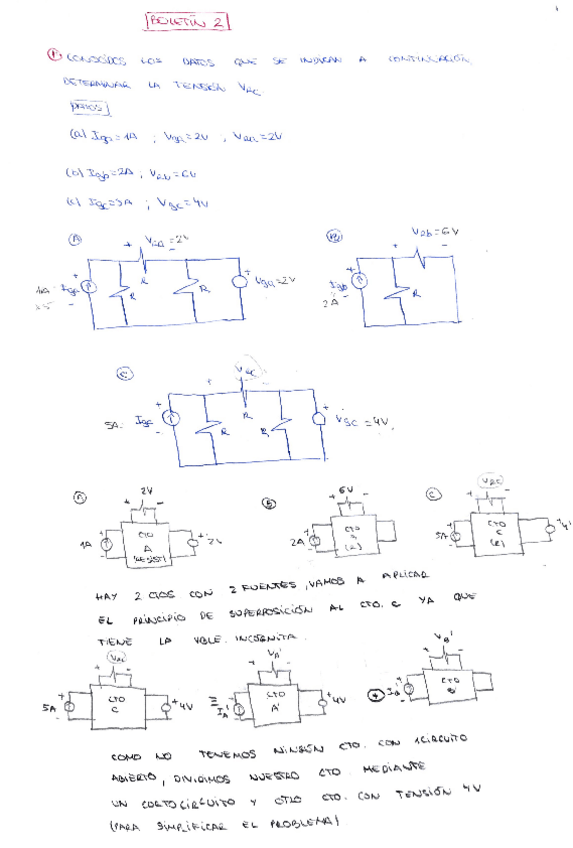 BOLETÍN 2
1. CONOCIDOS LOS DATOS QUE SE INDICAN A CONTINUACIÓN
DETERMINAR LA TENSIÓN VRC
DATOS
(a) Iga=1A ; Vga=2V ; VRa=2V
(b) Igb=2A ; VRb=6V
(c) Igc=5A ; Vgc=4V
A
+ VRa=2V -
+ Iga -
R
R
R
+ Vga=2V
B
VRb=6V
+ -
+ Igb -
2A
R
C
VRC
+
5A
+ Igc -
R
R
R
+ VgC=4V
A
2V
+ -
1A
CTO
A
+ 2V
B
6V
+ -
2A
CTO
C
VRC
+ -
5A
CTO
C
+4V
HAY 2 CTOS CON 2 FUENTES, VAMOS A APLICAR
EL PRINCIPIO DE SUPERPOSICIÓN AL CTO. C YA QUE
TIENE LA VBLE. INCÓGNITA.
VRC
+ -
5A
CTO
C
+4V
≡
VA'
+ -
IA'
CTO
A'
+4V
+
VB'
+ -
IB'
CTO
B'
COMO NO TENEMOS NINGÚN CTO. CON 1 CIRCUITO
ABIERTO, DIVIDIMOS NUESTRO CTO. MEDIANTE
UN CORTOCIRCUITO Y OTRO CTO. CON TENSIÓN 4V
(PARA SIMPLIFICAR EL PROBLEMA)